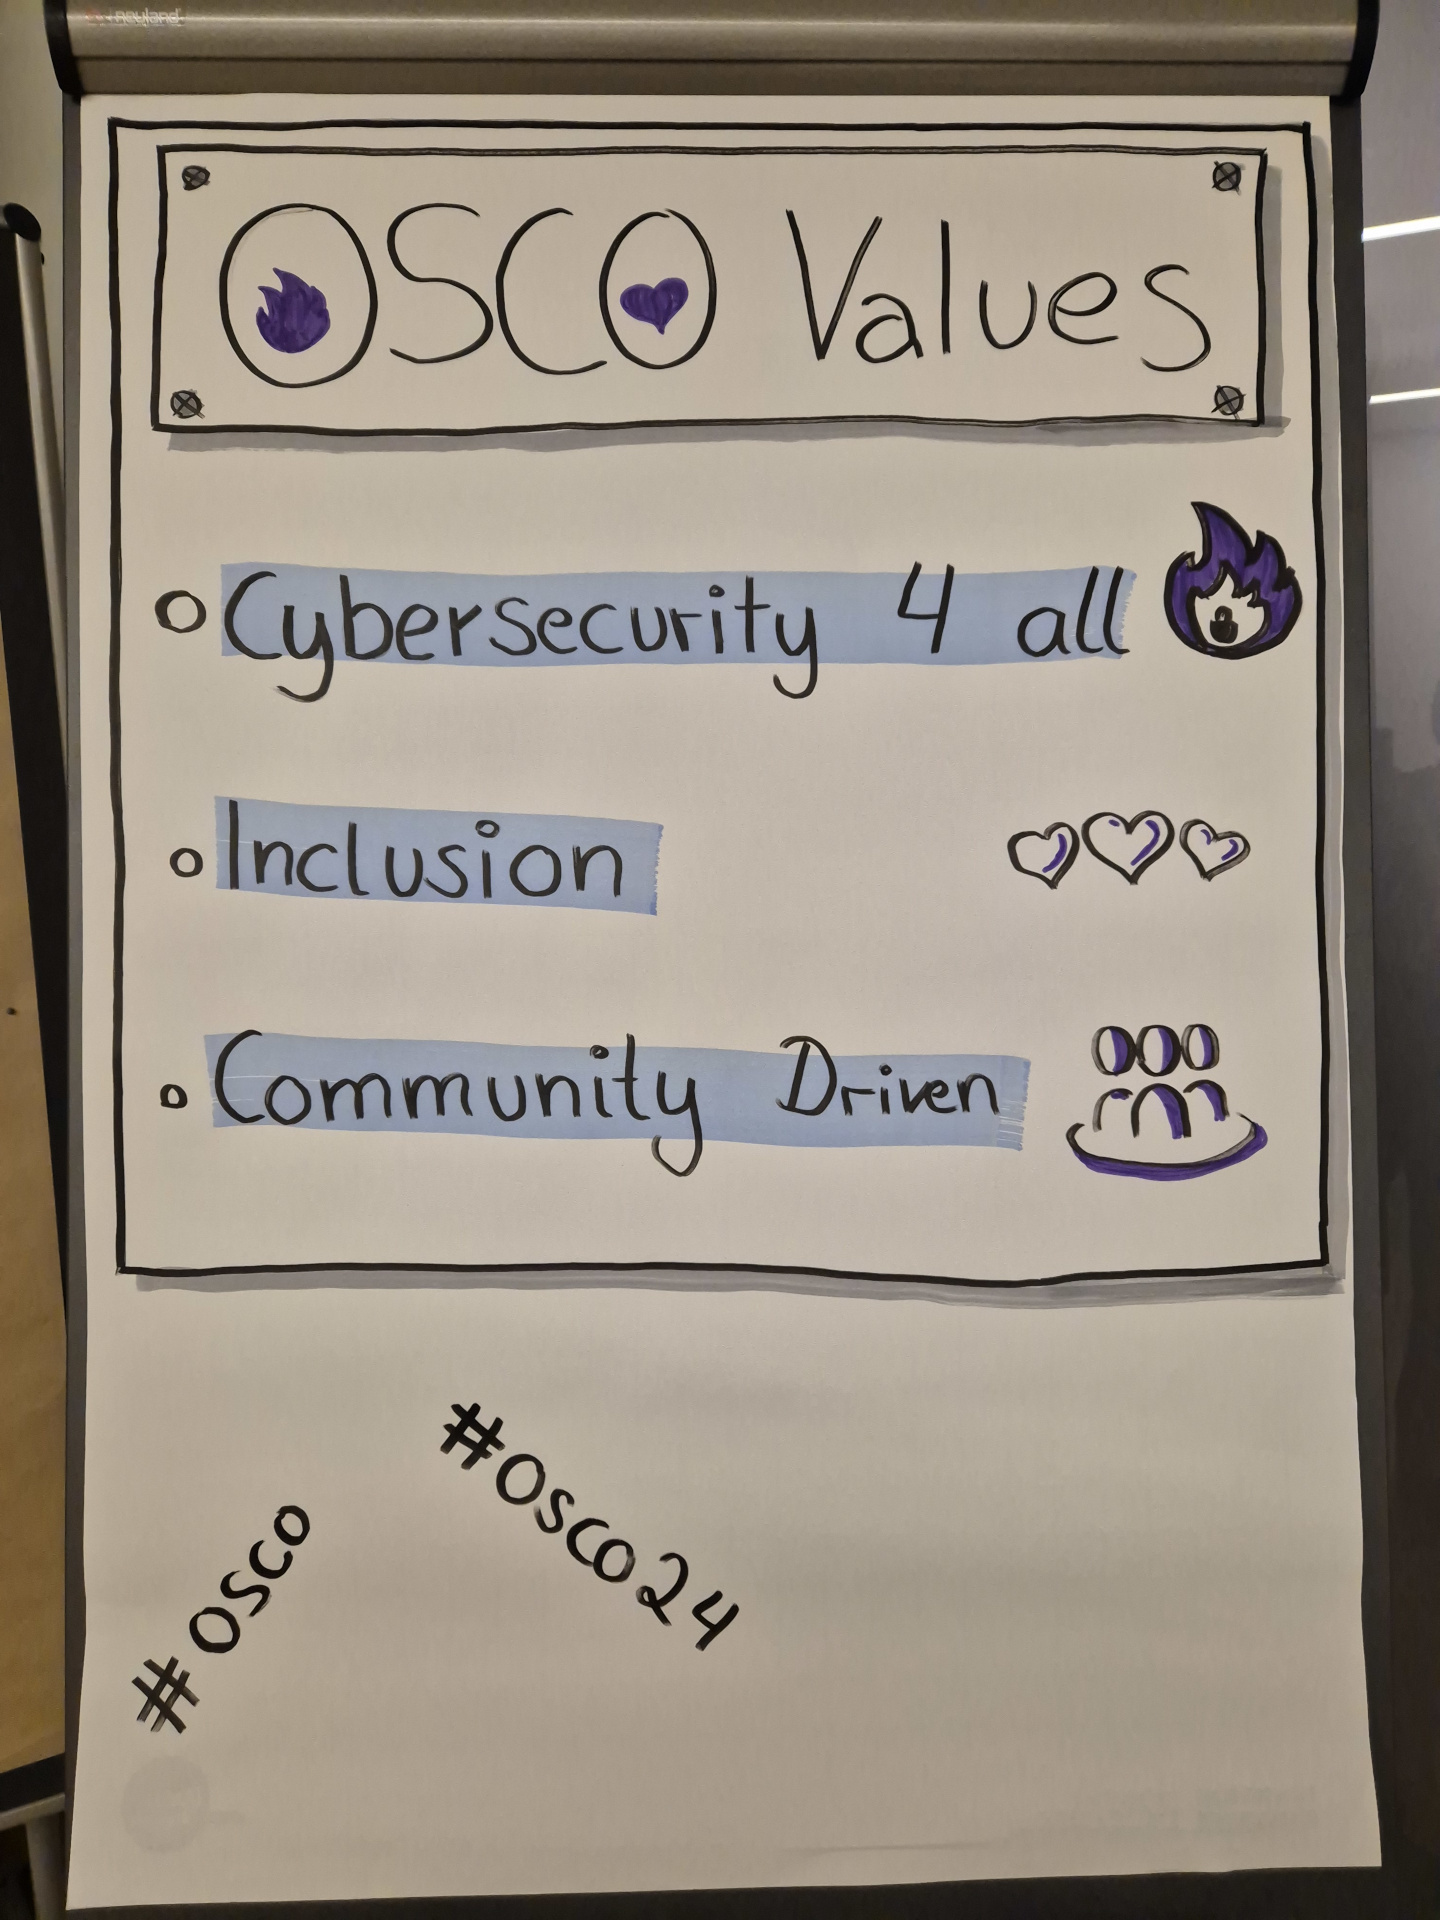 neuland
OSCO Values
Cybersecurity 4 all
Inclusion
Community Driven
#OSCO24
#OSCO